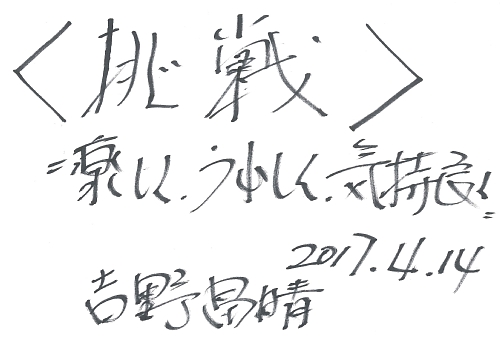 〈挑戦〉
〝楽しく、うれしく、気持良く〟
2017.4.14
吉野昌晴